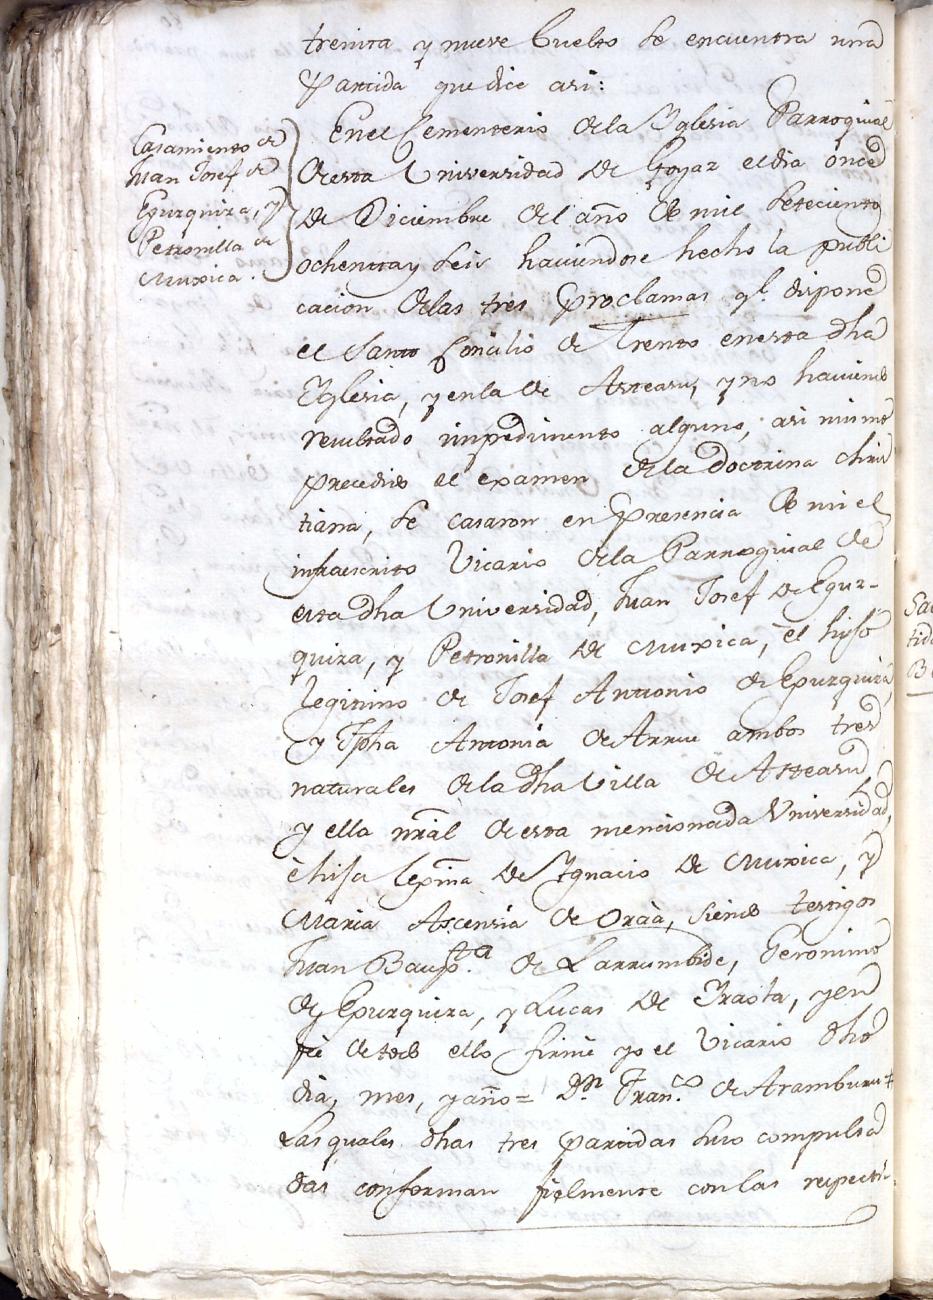 treinta y nueve buelto se encuentra una
Partida que dice asi:
Casamiento de
Juan Josef de
Egurquiza, y
Petronilla de
Muxica.
En el Cementerio de la Yglesia Parroquial
de esta Universidad de Goyaz el dia once
de Diciembre del año de mil setecientos
ochenta y seis haviendose hecho la publi
cacion de las tres proclamas ql. dispone
el Santo Concilio de Trento en esta dha
Yglesia, y en la de Asteasu, y no haviendo
resultado impedimento alguno, asi mismo
precedido el examen de la doctrina chris
tiana, se casaron en presencia de mi el
infraescrito Vicario de la Parroquial de
esta dha Universidad, Juan Josef de Egur-
quiza, y Petronilla de Muxica, el hijo
legitimo de Josef Antonio de Egurquiza,
y Jpha Antonia de Arrue ambos tres
naturales de la dha Villa de Asteasu,
y ella nral de esta mencionada Universidad,
è hija lexma de Ygnacio de Muxica, y
Maria Ascensia de Oraà, siendo testigos
Juan Baupta. de Larrumbide, Geronimo
de Egurquiza, y Lucas de Yraola, y en
fé de todo ello firmé yo el Vicario dho
dia, mes, y año = Dn. Franco. de Aramburu +
Las quales dhas tres partidas suso compulsa
das conforman fielmente con las respecti-